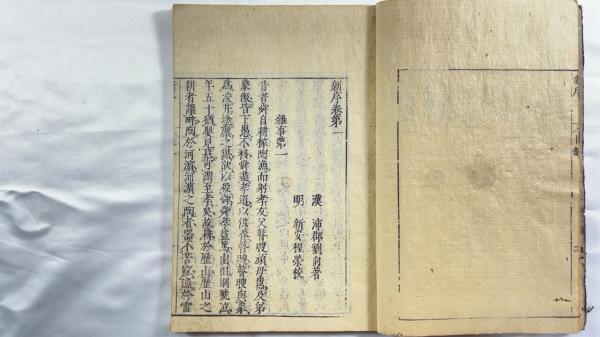 新序卷第一
漢 沛郡劉向著
明 新安程榮校
雜事第一
昔者舜自耕稼陶漁而躬孝友父瞽瞍頑母嚚及弟
象傲皆下愚不移舜盡孝道以供養瞽瞍瞽瞍與象
為浚井塗廩之謀欲以殺舜舜孝益篤出田則號泣
年五十猶嬰兒慕可謂至孝矣故耕於歷山歷山之
耕者讓畔陶於河濱河濱之陶者器不苦窳漁於雷